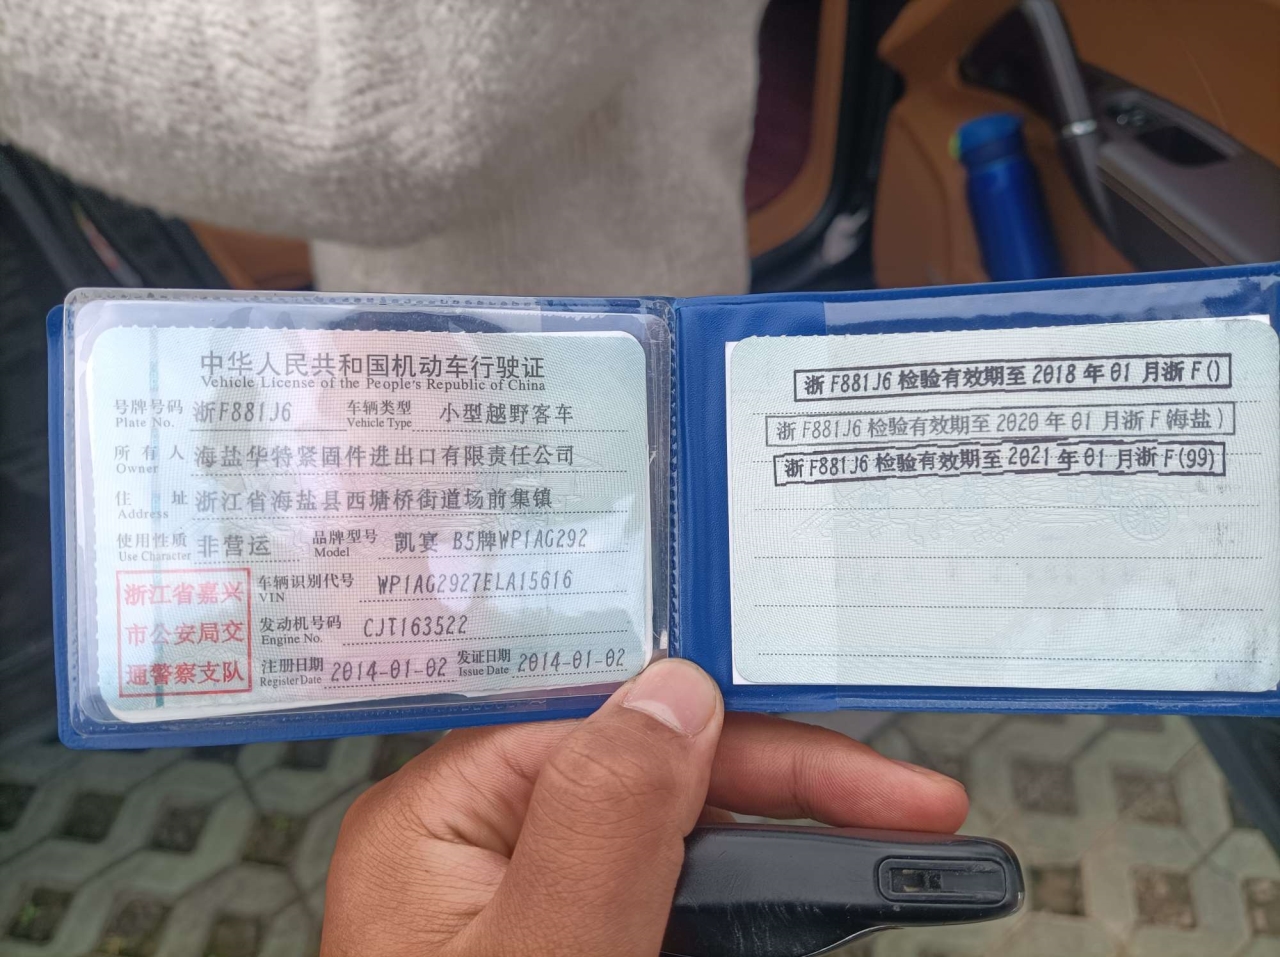 中华人民共和国机动车行驶证
Vehicle License of the People's Republic of China
号牌号码 浙F881J6 车辆类型 小型越野客车
Plate No. Vehicle Type
所有人 海盐华特紧固件进出口有限责任公司
Owner
住址 浙江省海盐县西塘桥街道场前集镇
Address
使用性质 非营运 品牌型号 凯宴 B5牌WP1AG292
Use Character Model
浙江省嘉兴
市公安局交
通警察支队
车辆识别代号 WP1AG2927ELA15616
VIN
发动机号码 CJT163522
Engine No.
注册日期 2014-01-02 发证日期 2014-01-02
Register Date Issue Date
浙F881J6检验有效期至2018年01月浙F()
浙F881J6检验有效期至2020年01月浙F(海盐)
浙F881J6检验有效期至2021年01月浙F(99)